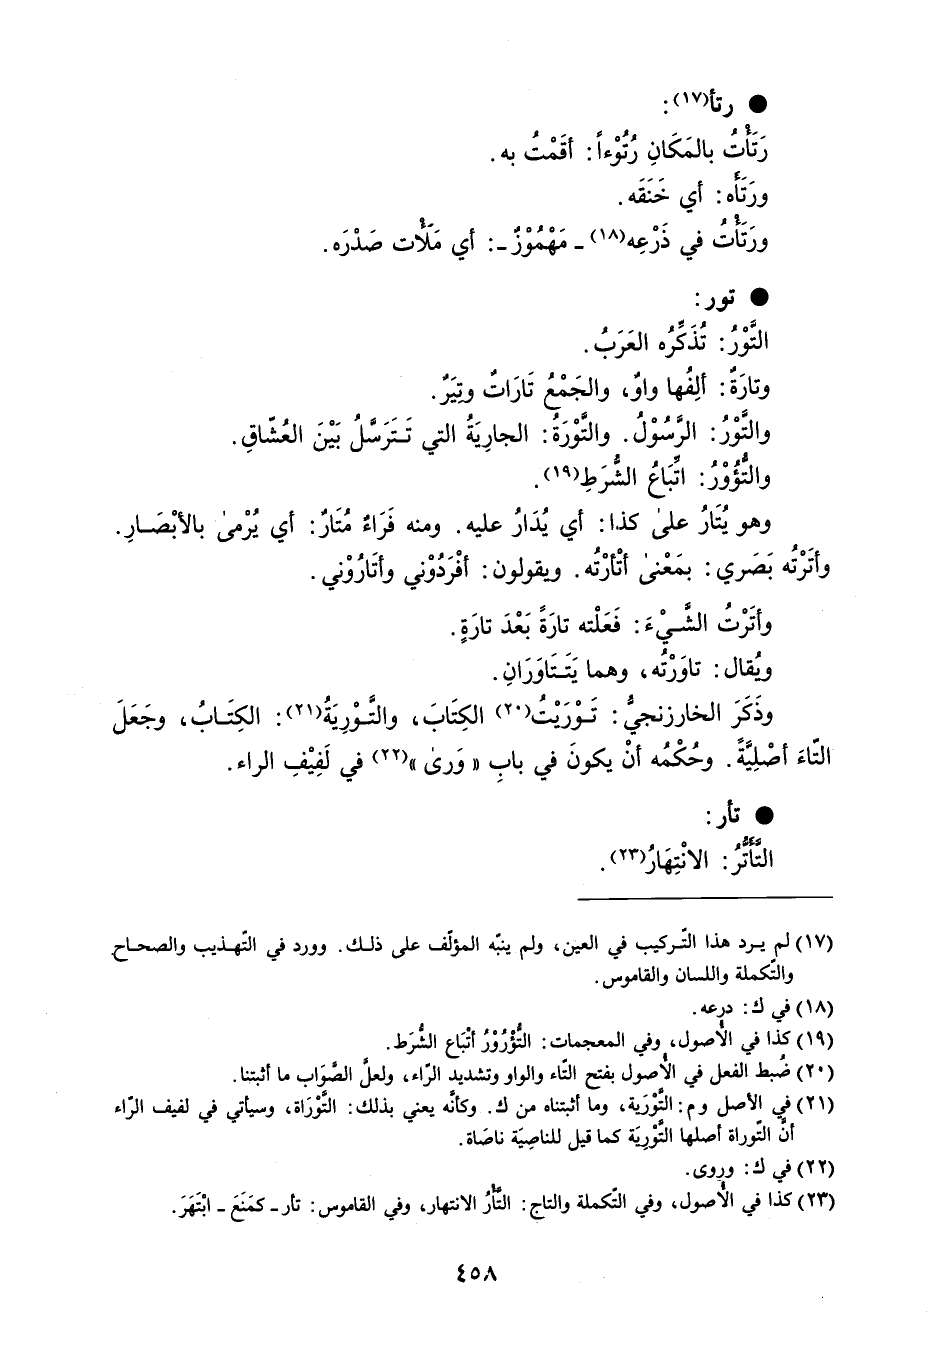 ● رتأ(١٧):
رَتَأْتُ بالمَكَانِ رُتُوْءاً: أقَمْتُ به.
ورَتَأَه: أي خَنَقَه.
ورَتَأْتُ في ذَرْعِه(١٨) ـ مَهْمُوْزٌ ـ: أي مَلَأْت صَدْرَه.
● تور:
التَّوْرُ: تُذَكِّرُه العَرَبُ.
وتارَةٌ: ألِفُها واوٌ، والجَمْعُ تَارَاتٌ وتِيَرٌ.
والتَّوْرُ: الرَّسُوْلُ. والتَّوْرَةُ: الجارِيَةُ التي تَتَرَسَّلُ بَيْنَ العُشّاقِ.
والتُّؤُوْرُ: اتِّبَاعُ الشُّرَطِ(١٩).
وهو يُتَارُ علىٰ كذا: أي يُدَارُ عليه. ومنه فَرَاءٌ مُتَارٌ: أي يُرْمىٰ بالأبْصَارِ.
وأتَرْتُه بَصَري: بمَعْنىٰ أتْأرْتُه. ويقولون: أفْرَدُوْني وأتَارُوْني.
وأتَرْتُ الشَّيْءَ: فَعَلْته تارَةً بَعْدَ تارَةٍ.
ويُقال: تاوَرْتُه، وهما يَتَتَاوَرَانِ.
وذَكَرَ الخارزنجيُّ: تَوْرَيْتُ(٢٠) الكِتَابَ، والتَّوْرِيَةُ(٢١): الكِتَابُ، وجَعَلَ
التّاءَ أصْلِيَّةً. وحُكْمُه أنْ يكونَ في بابِ « وَرىٰ »(٢٢) في لَفِيْفِ الراء.
● تأر:
التَّأَتُّرُ: الانْتِهَارُ(٢٣).
(١٧) لم يرد هذا التّركيب في العين، ولم ينبّه المؤلّف على ذلك. وورد في التّهذيب والصحاح
والتّكملة واللسان والقاموس.
(١٨) في ك: درعه.
(١٩) كذا في الأصول، وفي المعجمات: التُّؤْرُوْرُ أتْبَاع الشُّرَط.
(٢٠) ضُبط الفعل في الأصول بفتح التّاء والواو وتشديد الرّاء، ولعلَّ الصَّوَاب ما أثبتنا.
(٢١) في الأصل وم: التَّوْرَية، وما أثبتناه من ك. وكأنَّه يعني بذلك: التَّوْرَاة، وسيأتي في لفيف الرّاء
أنَّ التّوراة أصلها التَّوْرِيَة كما قيل للناصِيَة ناصَاة.
(٢٢) في ك: وروى.
(٢٣) كذا في الأصول، وفي التّكملة والتاج: التَّأْرُ الانتهار، وفي القاموس: تأر ـ كمَنَعَ ـ ابْتَهَرَ.
٤٥٨